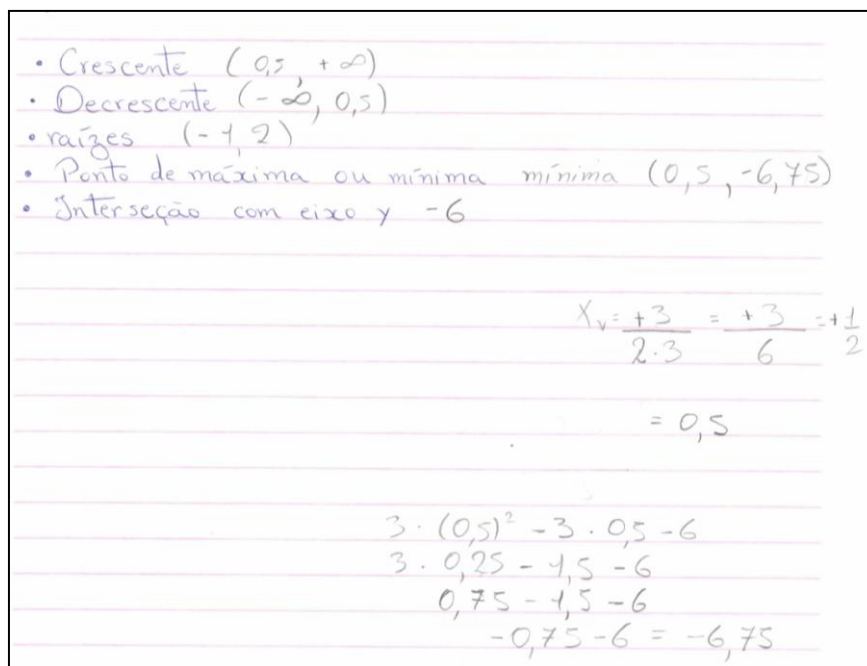 • Crescente (0,5, +∞)
• Decrescente (-∞, 0,5)
• raízes (-1, 2)
• Ponto de máxima ou mínima mínima (0,5, -6,75)
• Interseção com eixo y -6
Xv = +3/2·3 = +3/6 = +1/2
= 0,5
3 · (0,5)² - 3 · 0,5 - 6
3 · 0,25 - 1,5 - 6
0,75 - 1,5 - 6
-0,75 - 6 = -6,75